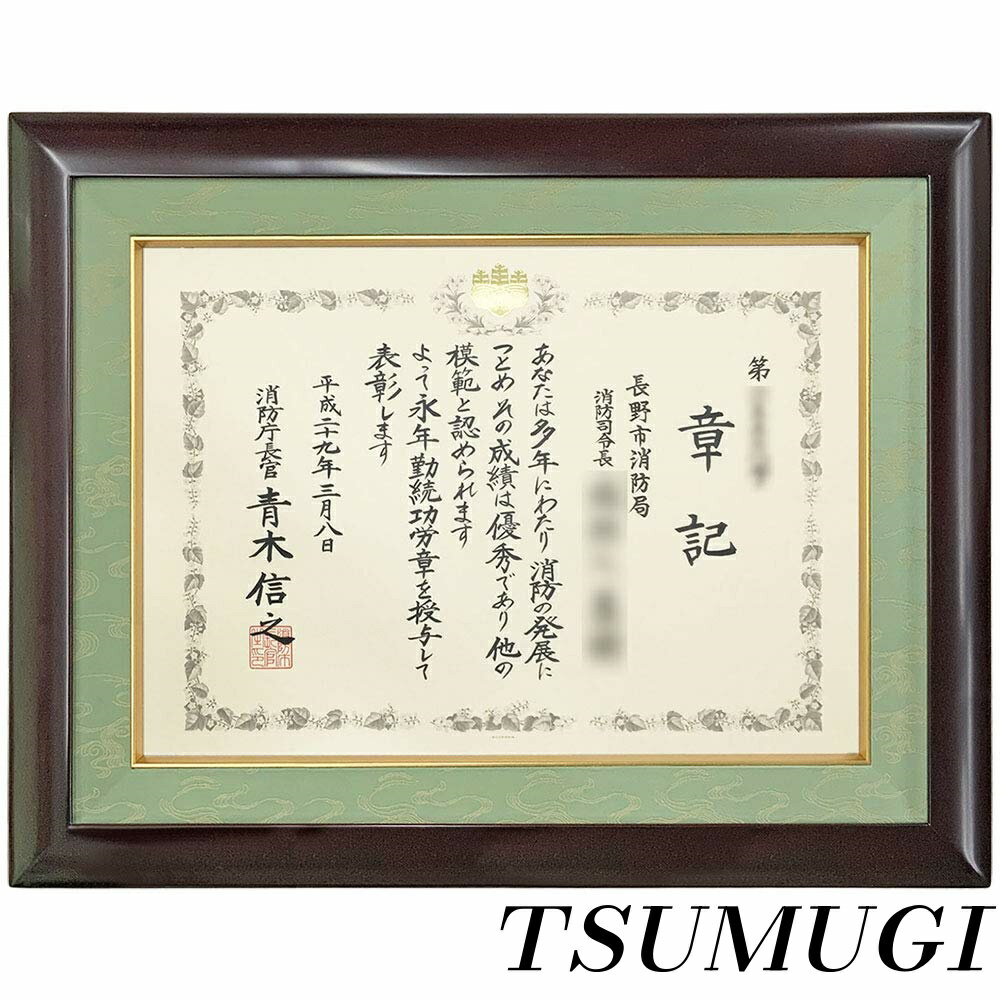 第
章記
長野市消防局
消防司令長
あなたは多年にわたり消防の発展に
つとめその成績は優秀であり他の
模範と認められます
よって永年勤続功労章を授与して
表彰します
平成二十九年三月八日
消防庁長官 青木信之
TSUMUGI